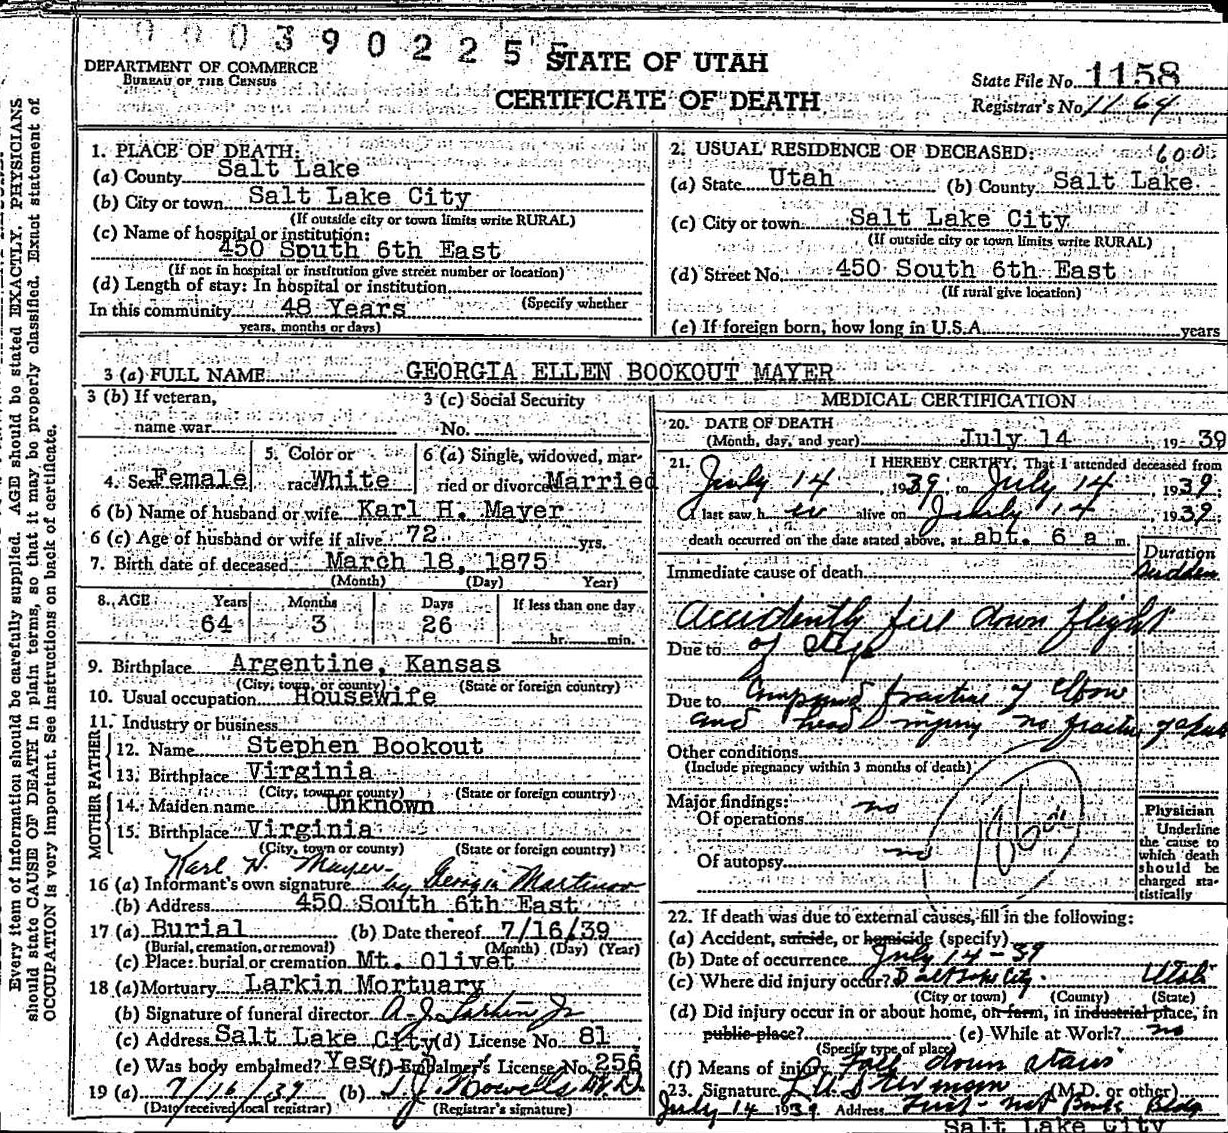 0003902255
STATE OF UTAH
DEPARTMENT OF COMMERCE
BUREAU OF THE CENSUS
CERTIFICATE OF DEATH
State File No. 1158
Registrar's No. 1164
1. PLACE OF DEATH:
(a) County Salt Lake
(b) City or town Salt Lake City
(If outside city or town limits write RURAL)
(c) Name of hospital or institution:
450 South 6th East
(If not in hospital or institution give street number or location)
(d) Length of stay: In hospital or institution
(Specify whether
In this community 48 Years
years, months or days)
2. USUAL RESIDENCE OF DECEASED: 600
(a) State Utah (b) County Salt Lake
(c) City or town Salt Lake City
(If outside city or town limits write RURAL)
(d) Street No. 450 South 6th East
(If rural give location)
(e) If foreign born, how long in U.S.A. years
3 (a) FULL NAME GEORGIA ELLEN BOOKOUT MAYER
3 (b) If veteran, 3 (c) Social Security
name war No.
4. Sex Female 5. Color or race White 6 (a) Single, widowed, married or divorced Married
6 (b) Name of husband or wife Karl H. Mayer
6 (c) Age of husband or wife if alive 72 yrs.
7. Birth date of deceased March 18, 1875
(Month) (Day) Year)
8. AGE Years Months Days If less than one day
64 3 26 hr. min.
9. Birthplace Argentine, Kansas
(City, town, or county) (State or foreign country)
10. Usual occupation Housewife
11. Industry or business
FATHER
12. Name Stephen Bookout
13. Birthplace Virginia
(City, town or county) (State or foreign country)
MOTHER
14. Maiden name Unknown
15. Birthplace Virginia
(City, town or county) (State or foreign country)
Karl H. Mayer
16 (a) Informant's own signature by Georgia Martineau
(b) Address 450 South 6th East
17 (a) Burial (b) Date thereof 7/16/39
(Burial, cremation, or removal) (Month) (Day) (Year)
(c) Place: burial or cremation Mt. Olivet
18 (a) Mortuary Larkin Mortuary
(b) Signature of funeral director A. J. Larkin Jr
(c) Address Salt Lake City (d) License No. 81
(e) Was body embalmed? Yes (f) Embalmer's License No. 256
19 (a) 7/16/39 (b) T. J. Howells M.D.
(Date received local registrar) (Registrar's signature)
MEDICAL CERTIFICATION
20. DATE OF DEATH
(Month, day, and year) July 14 19 39
21. I HEREBY CERTIFY, That I attended deceased from
July 14, 1939 to July 14, 1939.
I last saw h er alive on July 14, 1939.
death occurred on the date stated above, at abt. 6 a m.
Duration
Immediate cause of death Sudden
Accidently fell down flight
Due to of steps
Due to Compound fracture of elbow
and head injury no fracture of skull
Other conditions
(Include pregnancy within 3 months of death)
Major findings:
Of operations no
Of autopsy no
Physician
Underline
the cause to
which death
should be
charged sta-
tistically
22. If death was due to external causes, fill in the following:
(a) Accident, suicide, or homicide (specify)
(b) Date of occurrence July 14 - 39
(c) Where did injury occur? Salt Lake City. Utah
(City or town) (County) (State)
(d) Did injury occur in or about home, on farm, in industrial place, in
public place? (e) While at Work? no
(Specify type of place)
(f) Means of injury Fall down stairs
23. Signature (M.D. or other)
July 14 1939 Address First Nat Bank Bldg
Salt Lake City
Every item of information should be carefully supplied. AGE should be stated EXACTLY. PHYSICIANS
should state CAUSE OF DEATH in plain terms, so that it may be properly classified. Exact statement of
OCCUPATION is very important. See instructions on back of certificate.